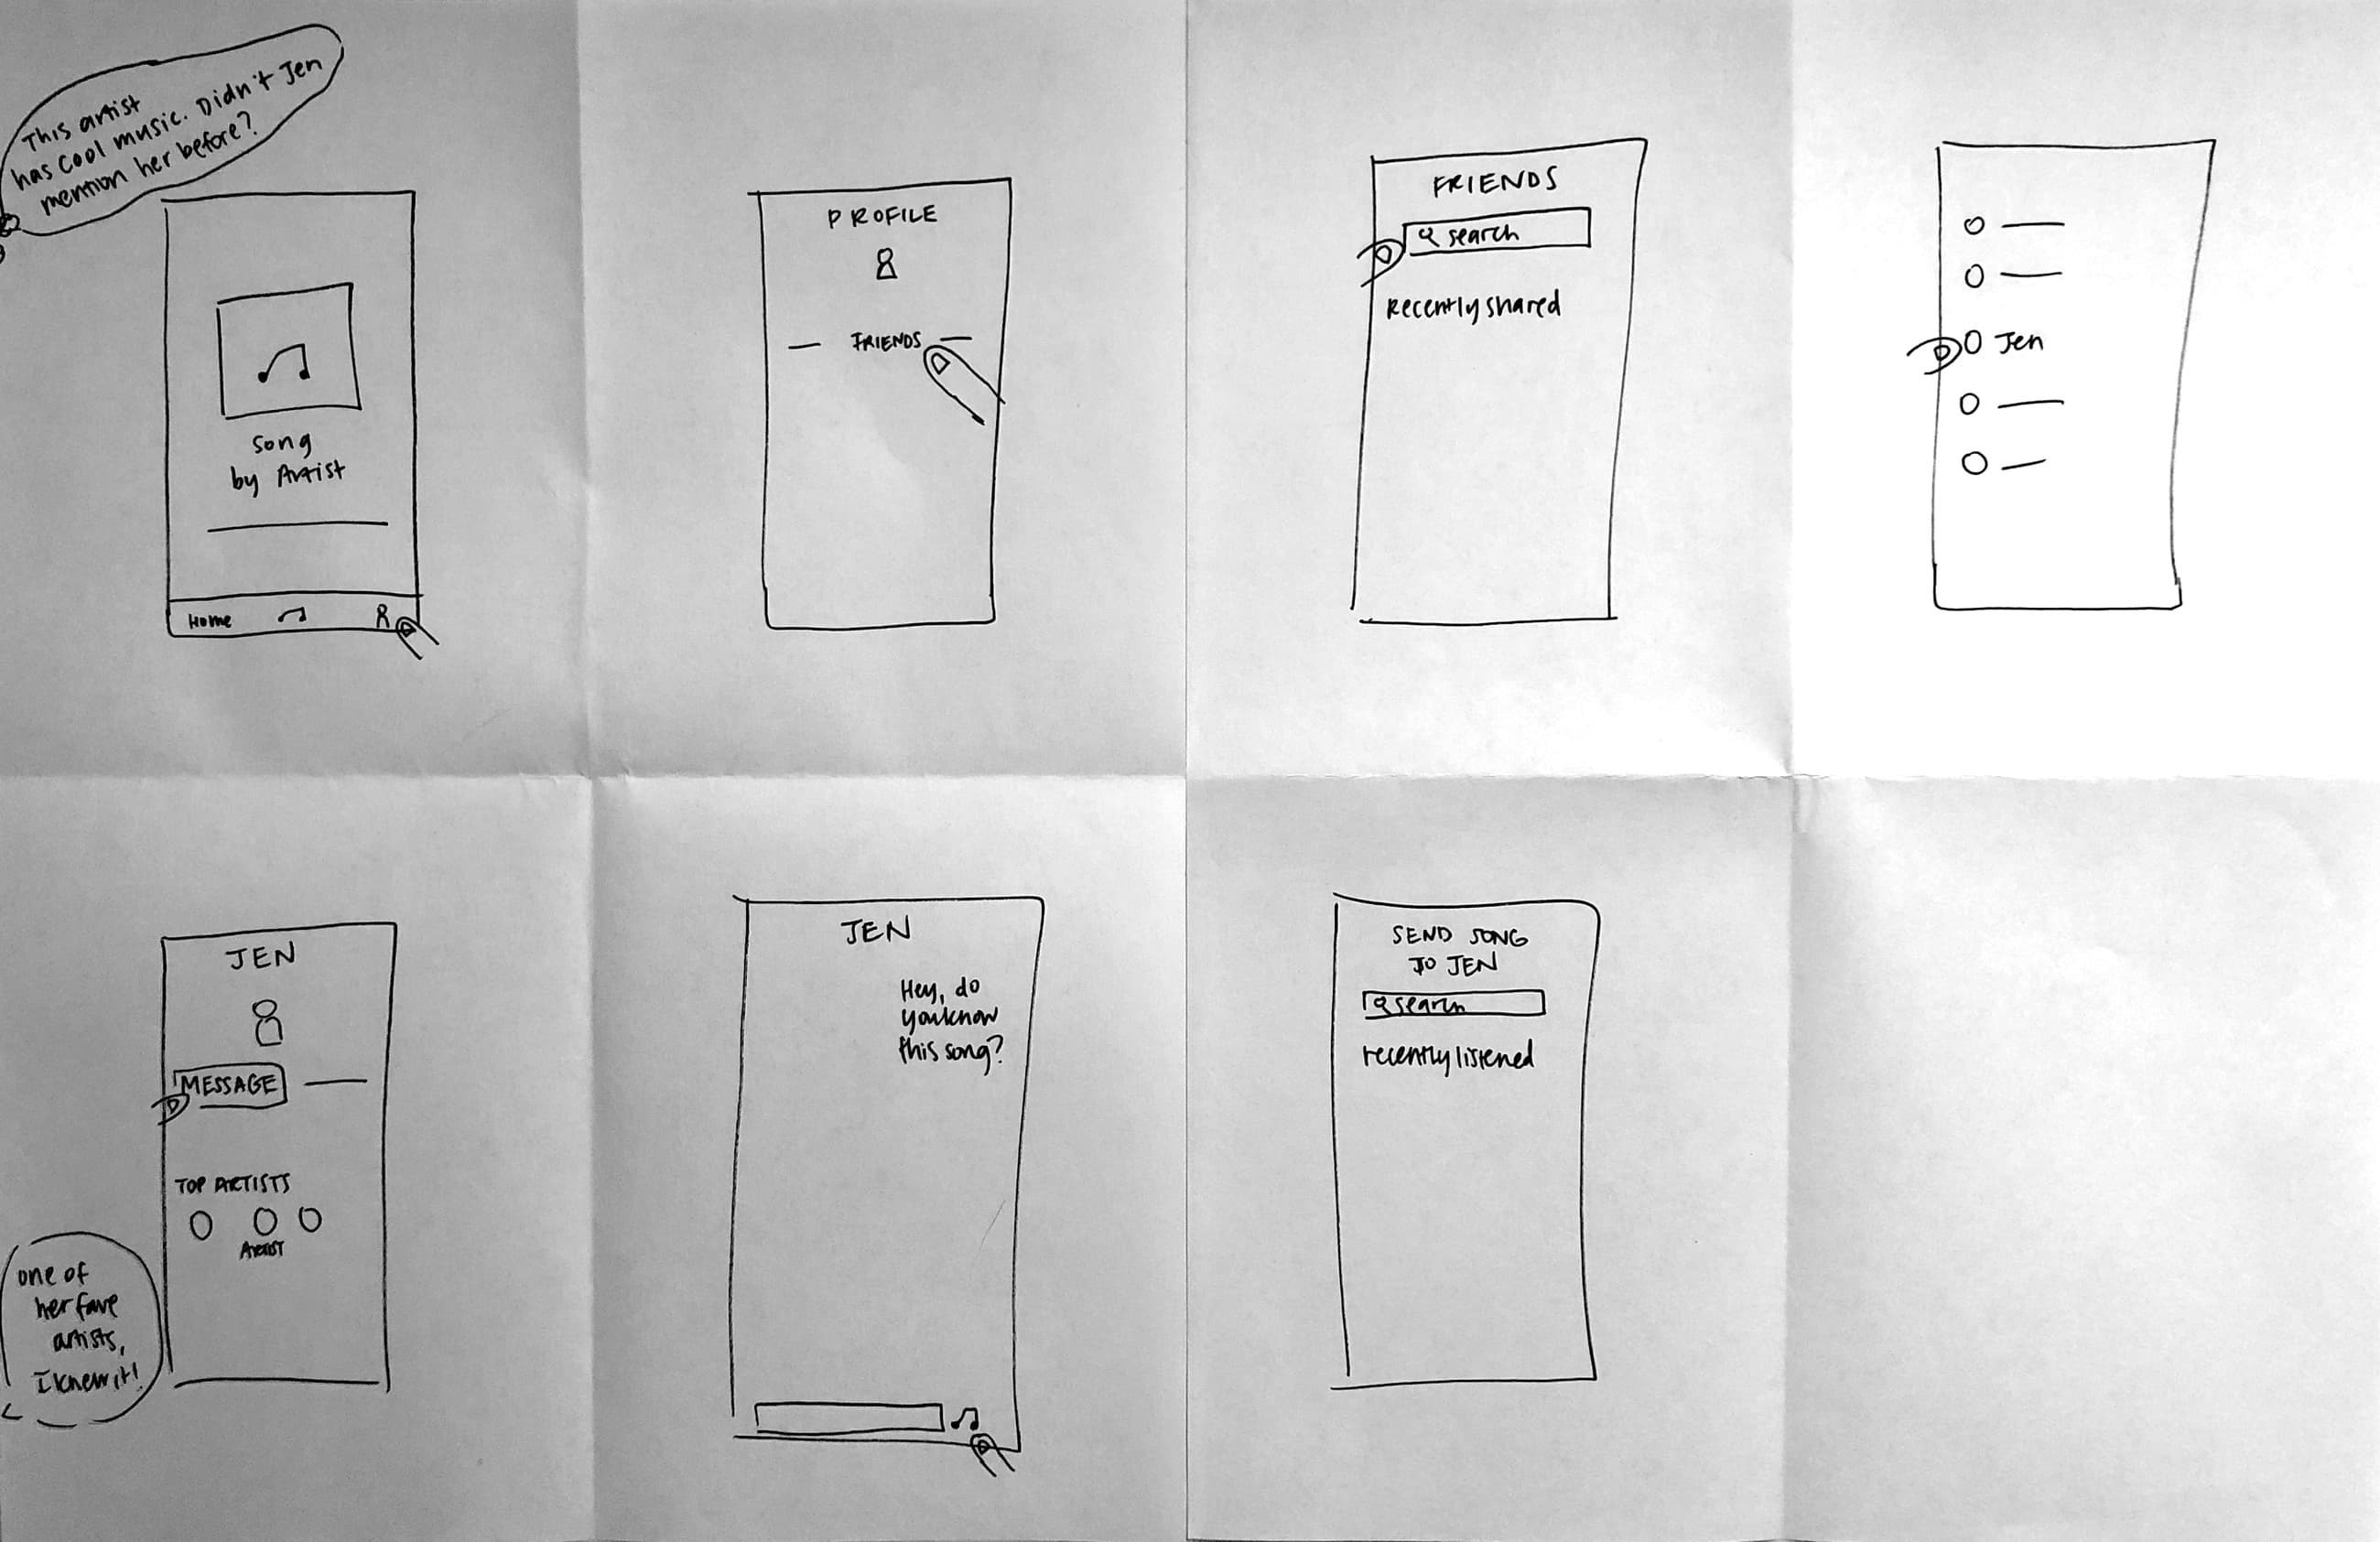 This artist
has cool music. Didn't Jen
mention her before?
Song
by Artist
Home
PROFILE
FRIENDS
FRIENDS
search
Recently shared
Jen
JEN
MESSAGE
TOP ARTISTS
ARTIST
one of
her fave
artists,
I knew it!
JEN
Hey, do
you know
this song?
SEND SONG
TO JEN
search
recently listened